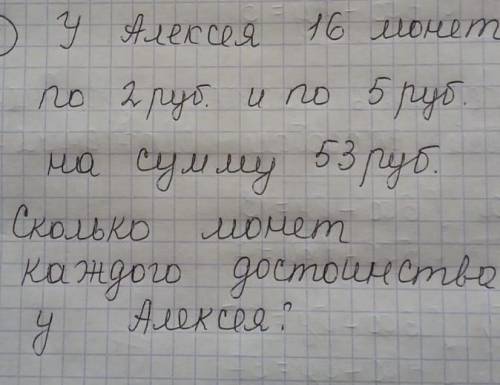 ) У Алексея 16 монет
по 2 руб. и по 5 руб.
на сумму 53 руб.
Сколько монет
каждого достоинства
у Алексея?